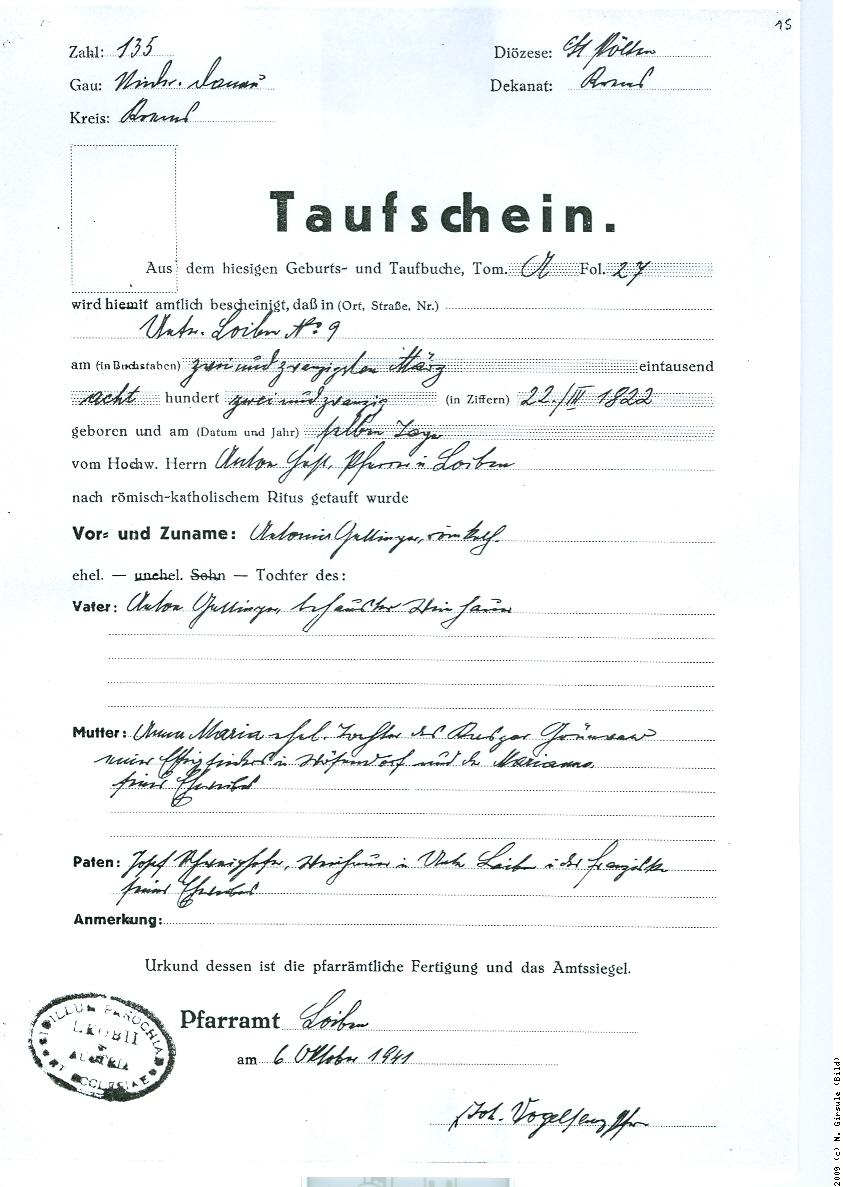 15
Zahl: 135 Diözese: St Pölten
Gau: Nieder. Donau Dekanat: Krems
Kreis: Krems
Taufschein.
Aus dem hiesigen Geburts- und Taufbuche, Tom. A Fol. 27
wird hiemit amtlich bescheinigt, daß in (Ort, Straße, Nr.)
Unter. Loiben No 9
am (in Buchstaben) zweiundzwanzigsten März eintausend
acht hundert zweiundzwanzig (in Ziffern) 22./III 1822
geboren und am (Datum und Jahr) selben Tage
vom Hochw. Herrn Anton Pfarrer in Loiben
nach römisch-katholischem Ritus getauft wurde
Vor- und Zuname: Antonia Gallinger, röm kath.
ehel. — unehel. Sohn — Tochter des:
Vater: Anton Gallinger, behauster Weinhauer
Mutter: Anna Maria ehel. Tochter des
in Wösendorf und der Marianna
seines Eheweibes
Paten: Josef Schweighofer, Weinhauer in Unter Loiben u der Franziska
seines Eheweibes
Anmerkung:
Urkund dessen ist die pfarrämtliche Fertigung und das Amtssiegel.
SIGILLUM PAROCHIA
LEOBII
AUSTRIA
ET ECCLESIAE
Pfarramt Loiben
am 6 Oktober 1941
Joh. Vogelsang Pfr
2009 (c) N. Girsule (Bild)